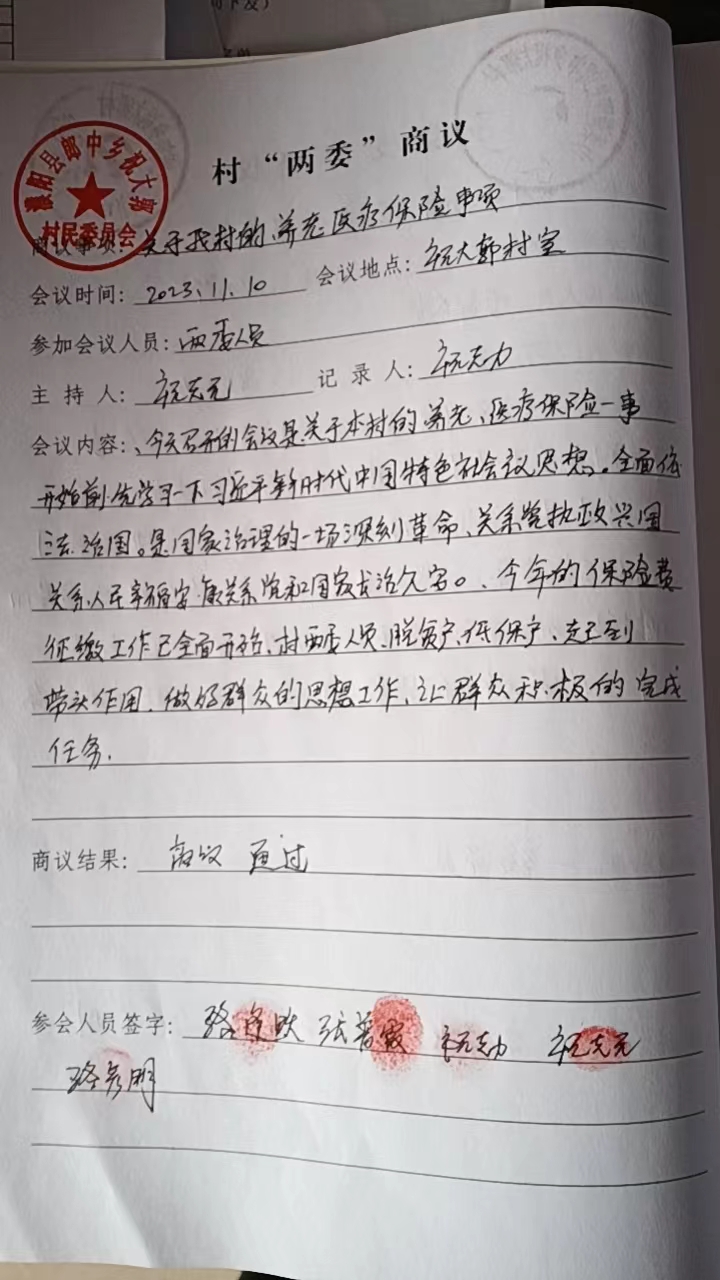 可下发）
村“两委”商议
濮阳县郎中乡祝大郭
村民委员会
商议事项：关于我村的养老医疗保险事项
会议时间：2023.11.10 会议地点：祝大郭村室
参加会议人员：两委人员
主持人：祝志元 记录人：祝志力
会议内容：、今天召开的会议是关于本村的养老、医疗保险一事
开始前先学习一下习近平新时代中国特色社会议思想。全面依
法治国。是国家治理的一场深刻革命、关系党执政兴国
关系人民幸福安康关系党和国家长治久安。、今年的保险费
征缴工作已全面开始、村两委人员、脱贫户、低保户、起到
带头作用、做好群众的思想工作、让群众积极的完成
任务.
商议结果：商议 通过
参会人员签字：骆 张 霞 祝志力 祝志元
骆彦明